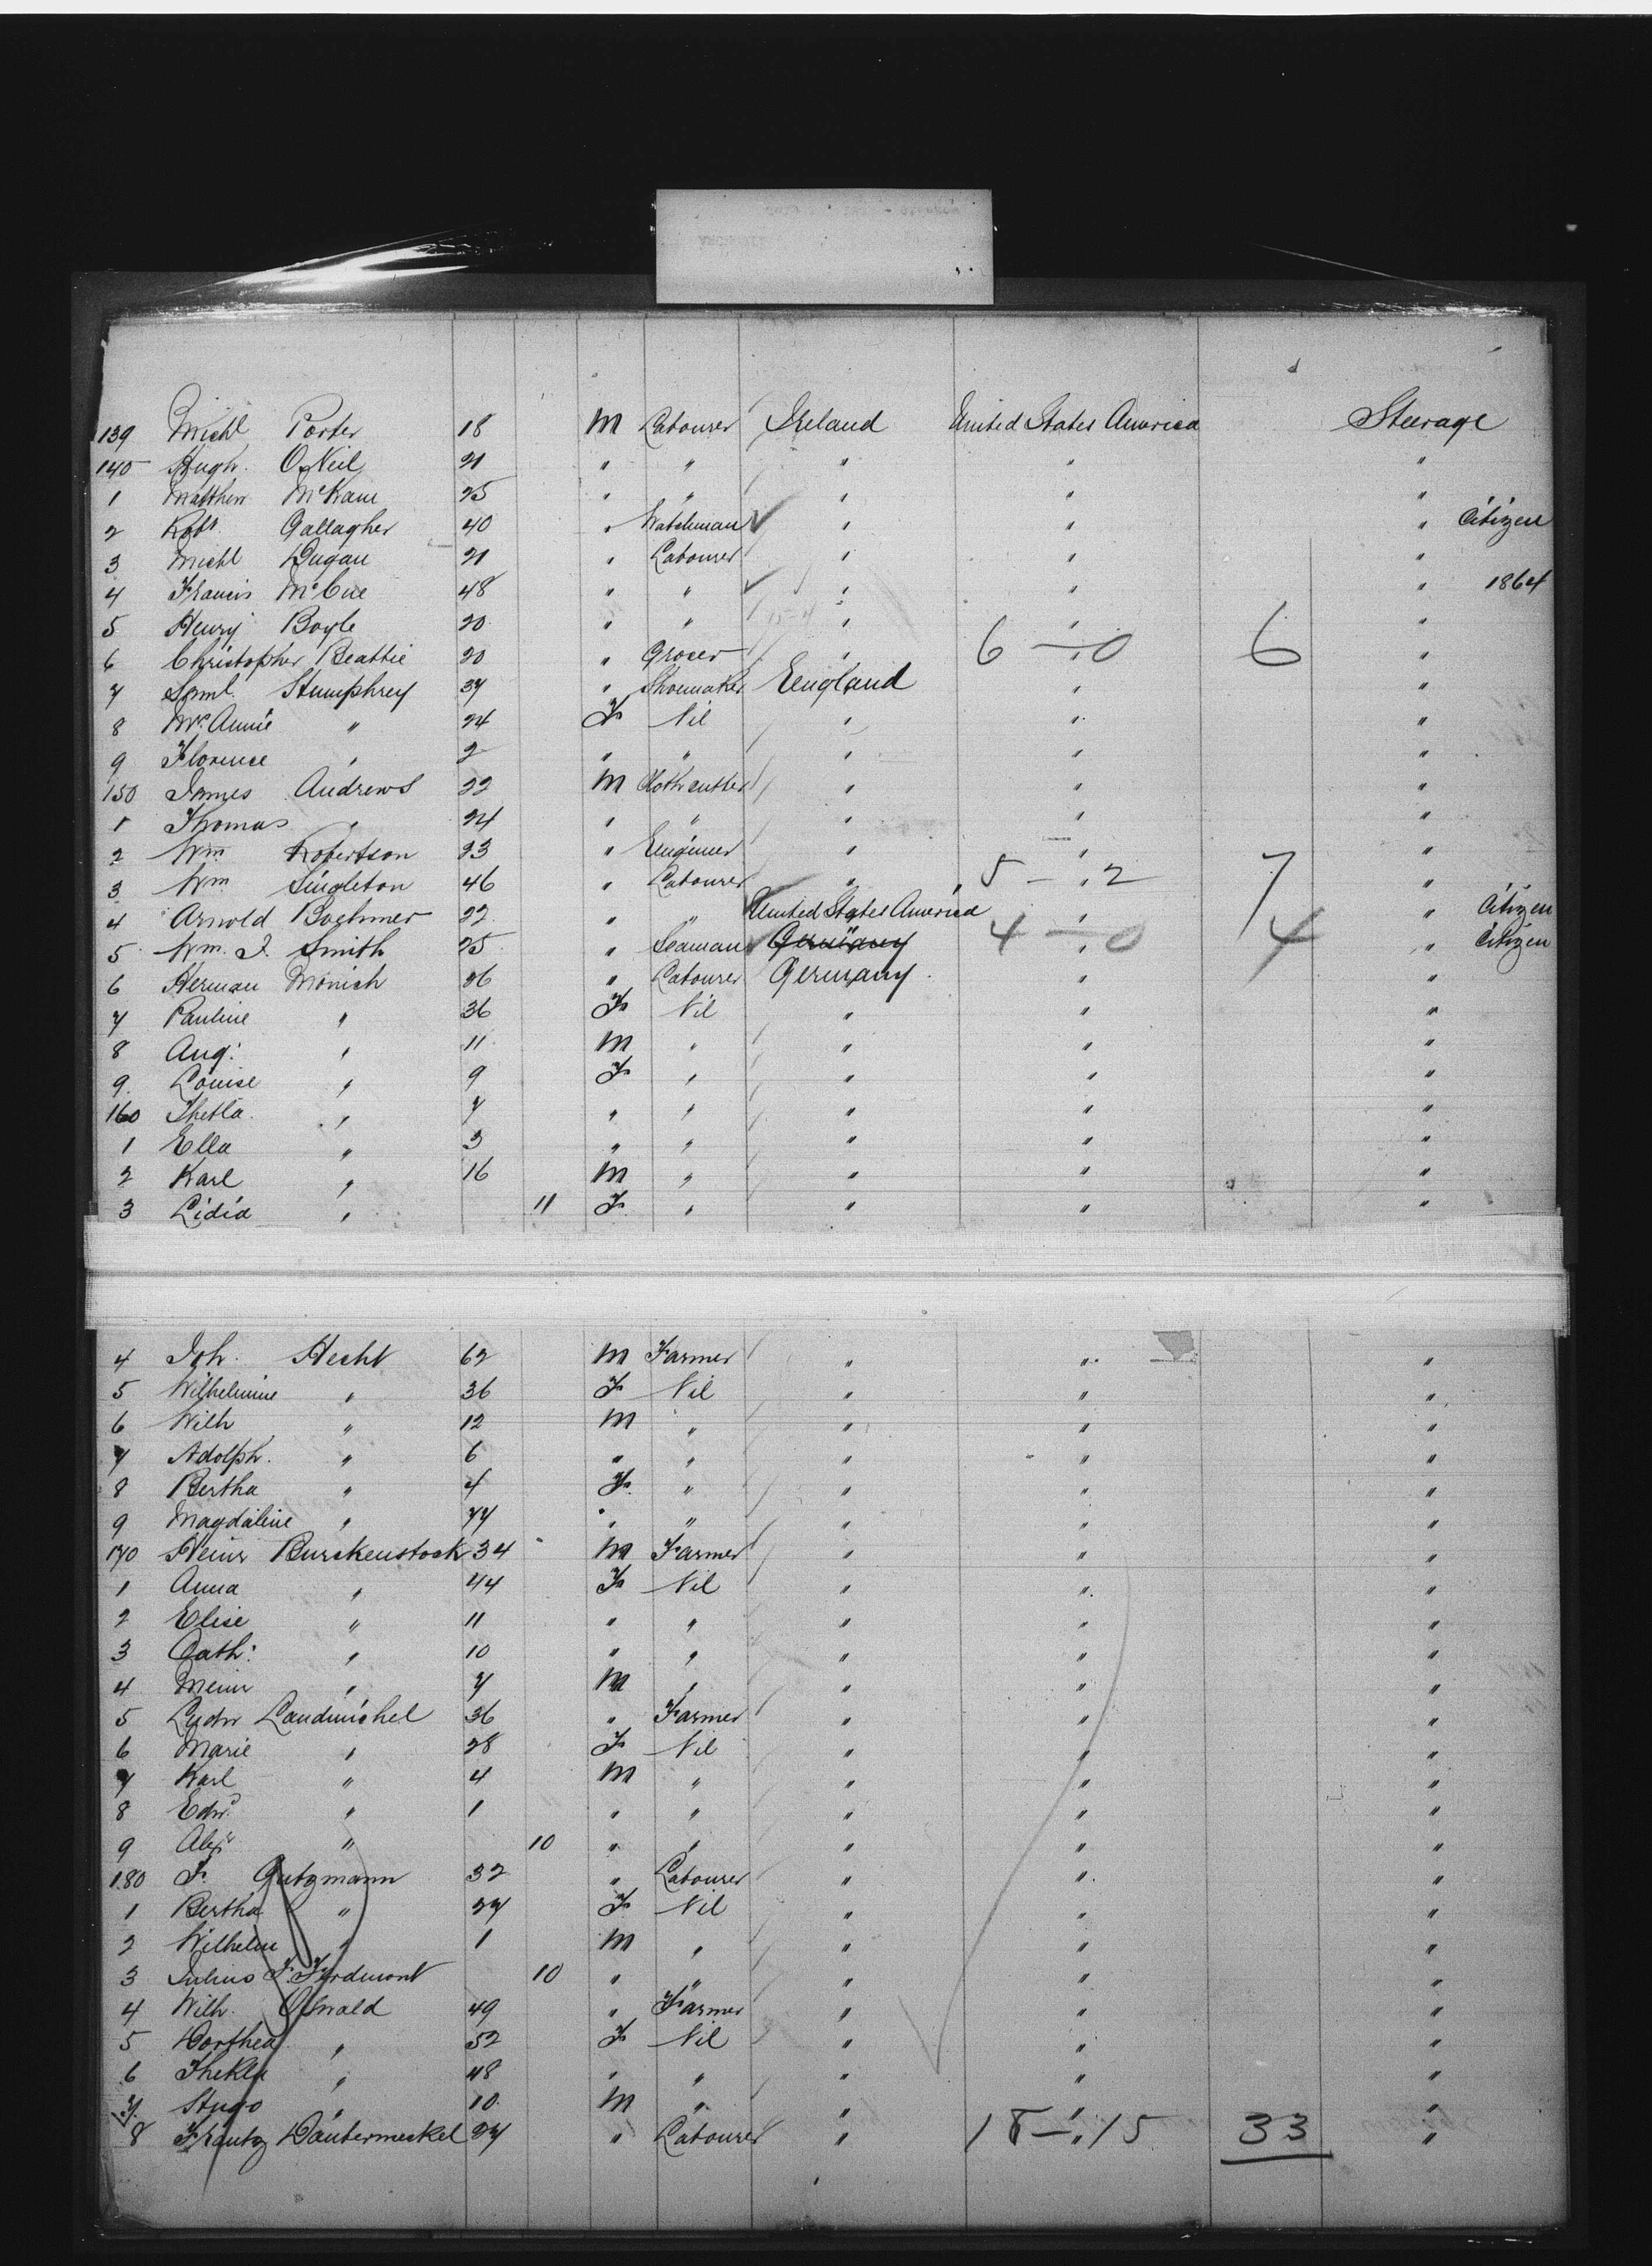 139 Michl Porter 18 M Labourer Ireland United States America Steerage
140 Hugh O'Neil 21 " " " " "
1 Matthew McKane 25 " " " " "
2 Robt Gallagher 40 " Watchman " " " Citizen
3 Michl Dugan 21 " Labourer " " "
4 Francis McCue 48 " " " " " 1864
5 Henry Boyle 20 " " " " "
6 Christopher Beattie 20 " Grocer " 6 — 0 6 "
7 Saml. Humphrey 37 " Shoemaker England " "
8 Mrs Annie " 24 F Nil " " "
9 Florence " 2 " " " " "
150 James Andrews 22 M Cloth cutter " " "
1 Thomas " 24 " " " " "
2 Wm Robertson 23 " Engineer " " "
3 Wm Singleton 46 " Labourer " 5 — 2 7 "
4 Arnold Boehmer 22 " " United States America " " Citizen
5 Wm. J. Smith 25 " Seaman Germany 4 — 0 4 " Citizen
6 Herman Monich 26 " Labourer Germany " "
7 Pauline " 36 F Nil " " "
8 Aug: " 11 M " " " "
9 Louise " 9 F " " " "
160 " 7 " " " " "
1 Ella " 3 " " " " "
2 Karl " 16 M " " " "
3 Lidia " 11 F " " " "
4 Joh. Hecht 62 M Farmer " " "
5 Wilhelmine " 36 F Nil " " "
6 Wilh " 12 M " " " "
7 Adolph. " 6 " " " " "
8 Bertha " 4 F " " " "
9 Magdaline " 77 " " " " "
170 Heinr Burckenstock 34 M Farmer " " "
1 Anna " 44 F Nil " " "
2 Elise " 11 " " " " "
3 Cath: " 10 " " " " "
4 " 7 M " " " "
5 Ludw Landmichel 36 " Farmer " " "
6 Marie " 28 F Nil " " "
7 Karl " 4 M " " " "
8 Edwd " 1 " " " " "
9 Alexr " 10 " " " " "
180 F. Gutzmann 32 " Labourer " " "
1 Bertha " 27 F Nil " " "
2 Wilhelm " 1 M " " " "
3 Julius F. 10 " " " " "
4 Wilh. Oswald 49 " Farmer " " "
5 Dorthea " 52 F Nil " " "
6 Thekla " 48 " " " " "
7 Hugo " 10 M " " " "
8 Frantz Dautermeckel 27 " Labourer " 18 — 15 33 "